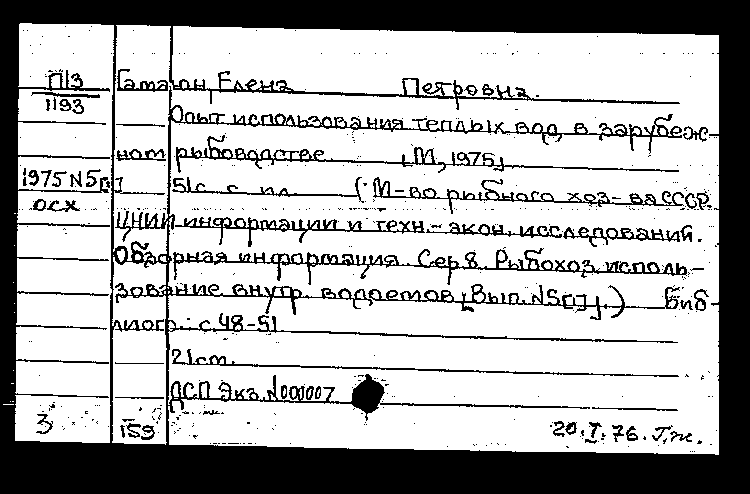 П13 Гамаюн, Елена Петровна.
1193
Опыт использования теплых вод в зарубеж-
ном рыбоводстве [М, 1975]
1975 N5 51с. с ил. (М-во рыбного хоз-ва СССР.
осх
ЦНИИ информации и техн.-экон. исследований.
Обзорная информация. Сер 8. Рыбохоз. исполь-
зование внутр. водоемов [Вып. N5[1].) Биб-
лиогр.: с. 48-51
21 см.
ДСП Экз. N000007
3 159 20.I.76. Г.ж.